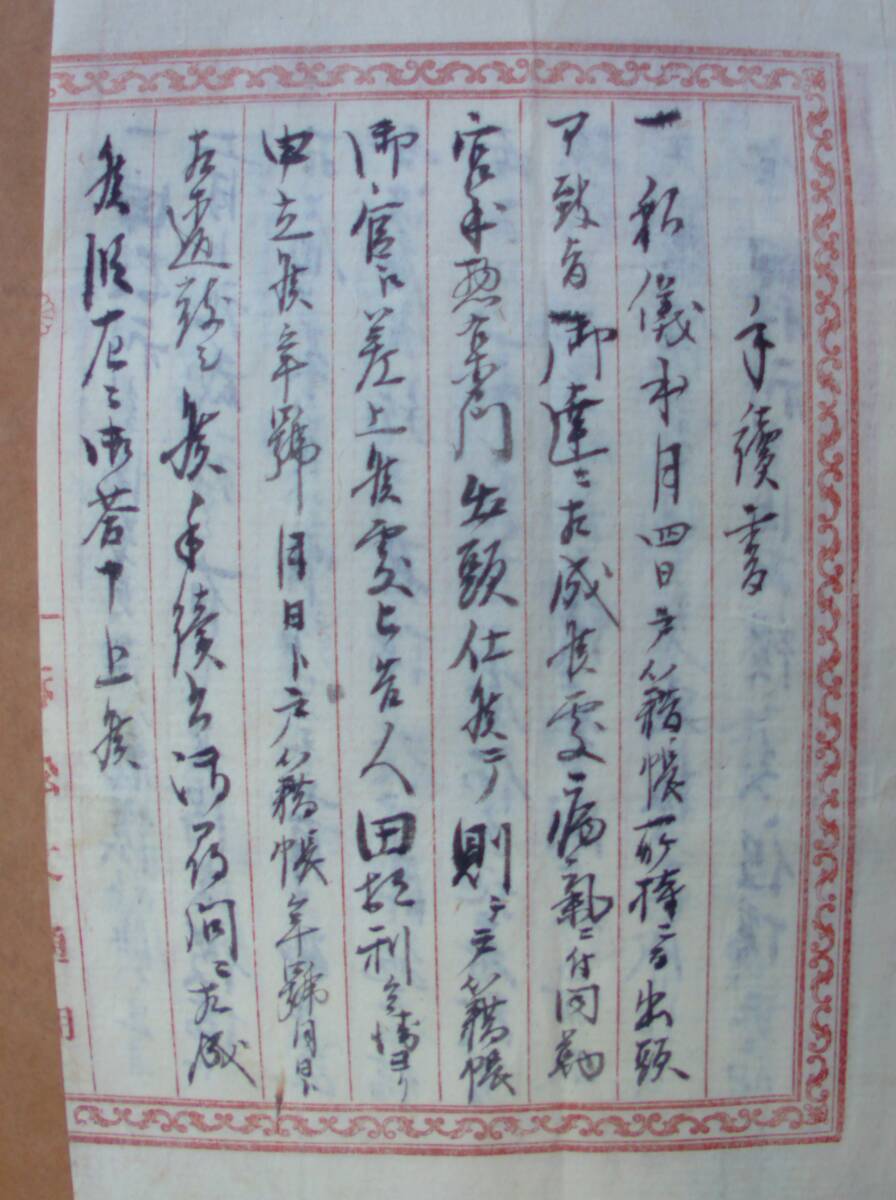 手續書
一私儀本月四日戸籍帳所持ニ而出頭
可致旨御達ニ相成候處病氣ニ付同勤
宮本惣右衛門出頭仕候ニ付則チ戸籍帳
御官ニ差上候處上告人田利ヨリ
申立候年號月日ト戸籍帳年號月日ト
相違致シ候手續書御尋問ニ相成
候段左ニ御答申上候